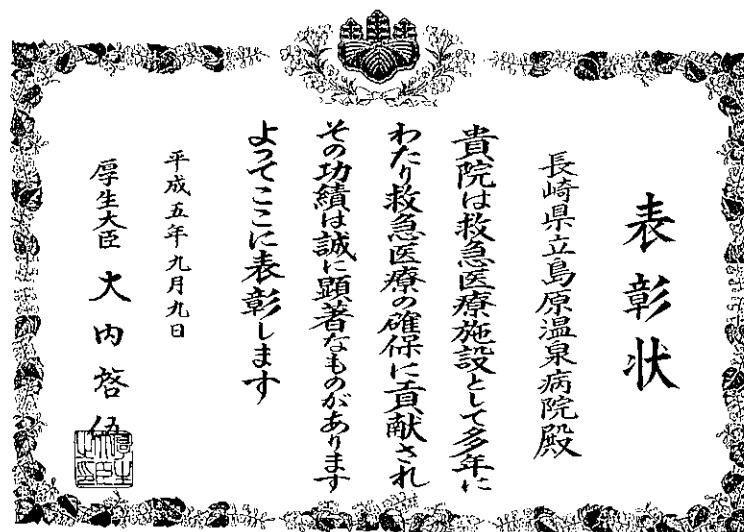 表彰状
長崎県立島原温泉病院殿
貴院は救急医療施設として多年に
わたり救急医療の確保に貢献され
その功績は誠に顕著なものがあります
よってここに表彰します
平成五年九月九日
厚生大臣 大内啓伍